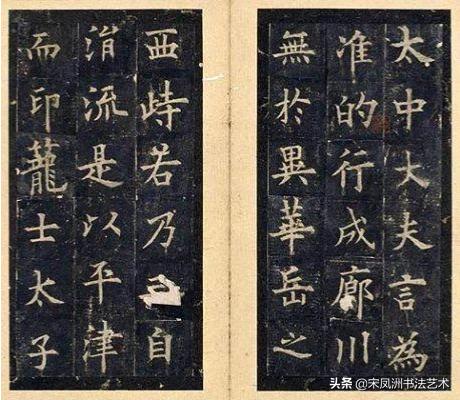 太中大夫言為
准的行成廊川
無於異華岳之
西峙若乃自
涓流是以平津
而印蘢士太子
头条 @宋凤洲书法艺术